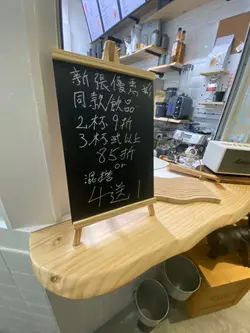 新張優惠
同款飲品
2杯9折
3杯或以上
85折
or
混搭
4送1